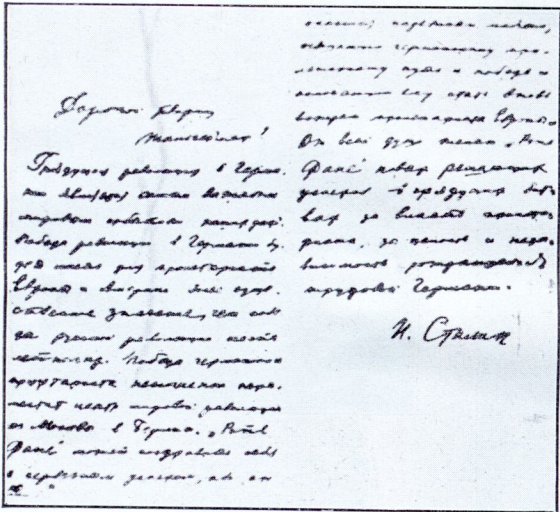 Дорогой товарищ
Тальгеймер!
Грядущая революция в Герма-
нии является самым важным
мировым событием наших дней.
Победа революции в Германии бу-
дет иметь для пролетариата
Европы и Америки более суще-
ственное значение, чем победа
русской революции шесть
лет назад. Победа германского
пролетариата несомненно пере-
местит центр мировой революции
из Москвы в Берлин. „Роте
Фане“ может поздравить себя
с серьезным успехом,
маяком,
германскому про-
летариату путь к победе и
ему стать вновь
вождем пролетариата Европы.
От всей души желаю „Роте
Фане“ новых решающих
успехов в грядущих бит-
вах за власть пролета-
риата, за целость и неза-
висимость рождающейся
трудовой Германии.
И. Сталин